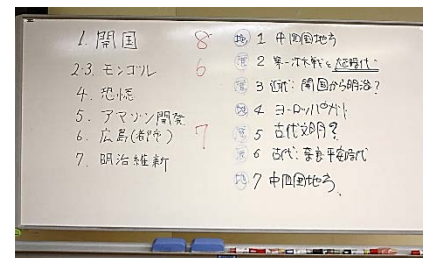 1. 開国 8
2-3. モンゴル 6
4. 恐慌
5. アマゾン開発
6. 広島(都市) 7
7. 明治維新
地 1 中四国地方
歴 2 第一次大戦と大正時代
歴 3 近代:開国から明治?
地 4 ヨーロッパ
歴 5 古代文明?
歴 6 古代:奈良平安時代
地 7 中四国地方